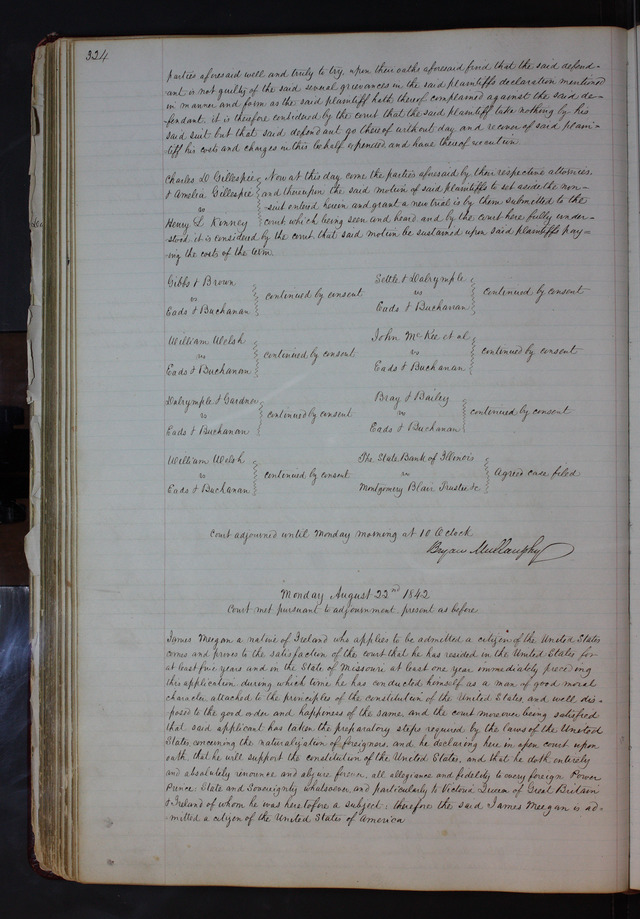 324
parties aforesaid well and truly to try, upon their oaths aforesaid find that the said defend-
ant is not guilty of the said several grievances in the said plaintiffs declaration mentioned
in manner and form as the said plaintiff hath thereof complained against the said de-
fendant. it is therefore considered by the court that the said plaintiff take nothing by his
said suit but that said defendant go thereof without day and recover of said plain-
tiff his costs and charges in this behalf expended and have thereof execution.
Charles D Gillespie
& Amelia Gillespie
vs
Henry L Kinney
Now at this day come the parties aforesaid by their respective attornies.
and thereupon the said motion of said plaintiffs to set aside the non-
suit entered herein and grant a new trial is by them submitted to the
court which being seen and heard and by the court here fully under-
stood it is considered by the court that said motion be sustained upon said plaintiffs pay-
ing the costs of the term.
Gibbs & Brown
vs
Eads & Buchanan
continued by consent
Settle & Dalrymple
vs
Eads & Buchanan
continued by consent
William Welsh
vs
Eads & Buchanan
continued by consent
John McKee et al
vs
Eads & Buchanan
continued by consent
Dalrymple & Gardner
vs
Eads & Buchanan
continued by consent
Bray & Bailey
vs
Eads & Buchanan
continued by consent
William Welsh
vs
Eads & Buchanan
continued by consent
The State Bank of Illinois
vs
Montgomery Blair Trustee &c
Agreed case filed
Court adjourned until Monday morning at 10 O'Clock
Bryan Mullanphy
Monday August 22nd 1842
Court met pursuant to adjournment. present as before.
James Meegan a native of Ireland who applies to be admitted a citizen of the United States
comes and proves to the satisfaction of the court that he has resided in the United States for
at least five years and in the State of Missouri at least one year immediately preceding
this application during which time he has conducted himself as a man of good moral
character attached to the principles of the constitution of the United States and well dis-
posed to the good order and happiness of the same, and the court moreover being satisfied
that said applicant has taken the preparatory steps required by the laws of the United
States concerning the naturalization of foreigners. and he declaring here in open court upon
oath, that he will support the constitution of the United States, and that he doth entirely
and absolutely renounce and abjure forever, all allegiance and fidelity to every foreign Power
Prince, State and Sovereignty whatsoever and particularly to Victoria Queen of Great Britain
& Ireland of whom he was heretofore a subject; therefore the said James Meegan is ad-
mitted a citizen of the United States of America